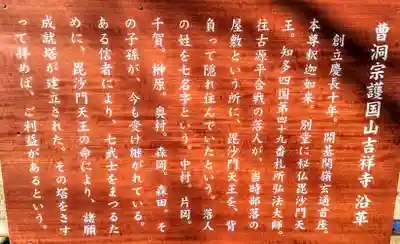 曹洞宗護国山吉祥寺 沿革
創立慶長十年。 開基関嶺玄通首座。
本尊釈迦如来。 別堂に秘仏毘沙門天
王。知多四国第四十九番札所弘法大師。
往古源平合戦の落人が、当時部落の
屋敷という所に、毘沙門天王を、背
負って隠れ住んでいたという。落人
の姓を七名字という。中村。片岡。
千賀。榊原。奥村。森岡。森田。そ
の子孫が、今も受け継がれている。
ある信者により、七武士をまつるた
めに、毘沙門天王の命により、諸願
成就塔が建立された。その塔をさす
って拝めば、ご利益があるという。